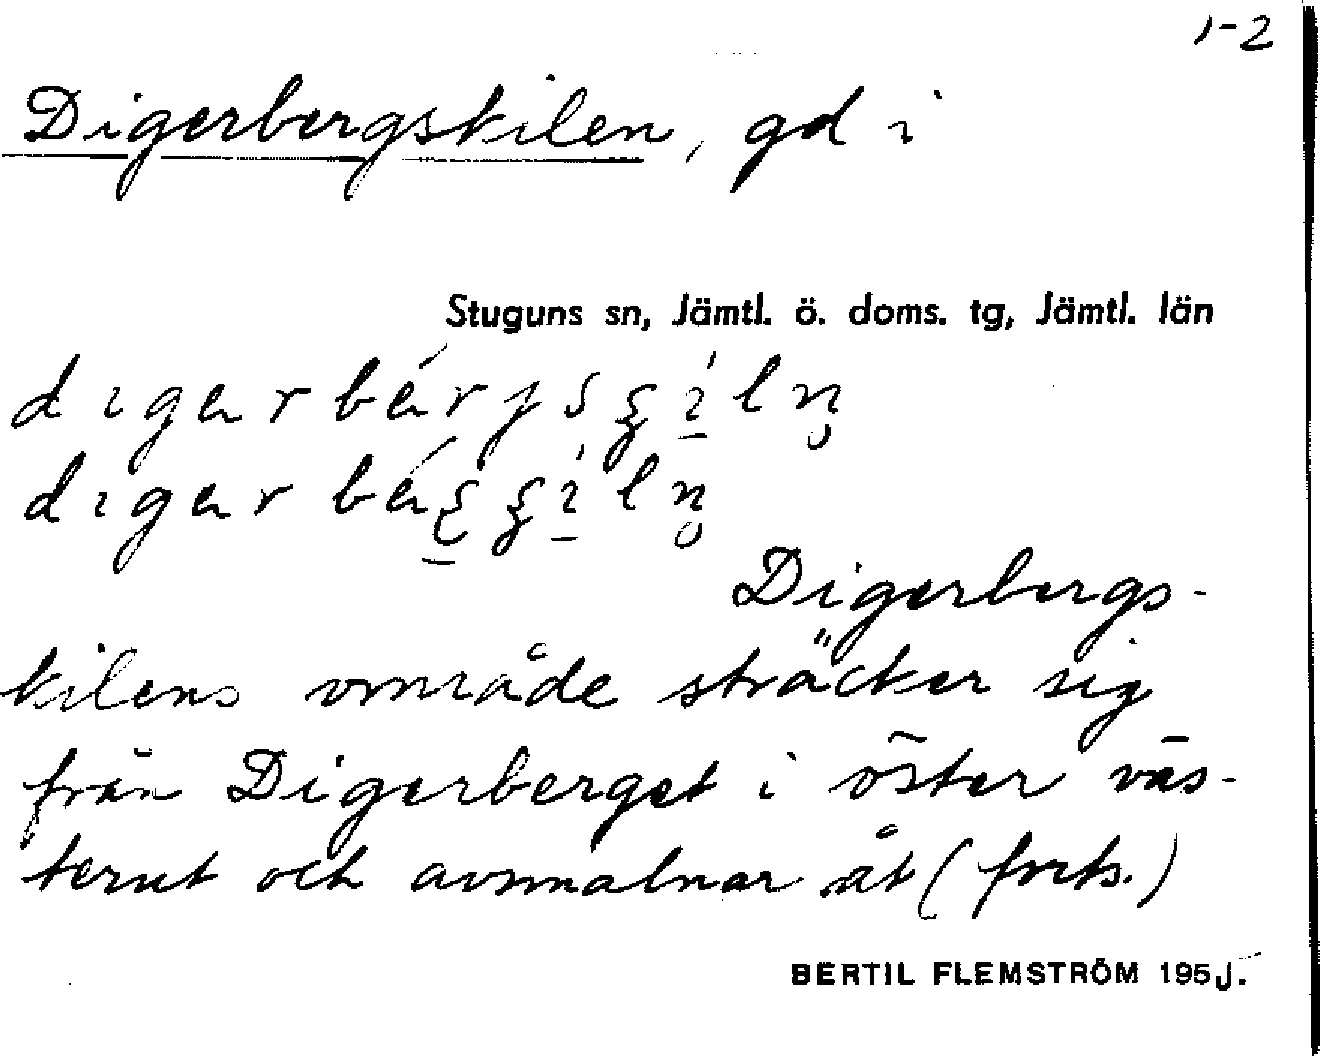 1-2
Digerbergskilen, gd i
Stuguns sn, Jämtl. ö. doms. tg, Jämtl. län
Digerbergs-
kilens område sträcker sig
från Digerberget i öster väs-
terut och avsmalnar åt (forts.)
BERTIL FLEMSTRÖM 195